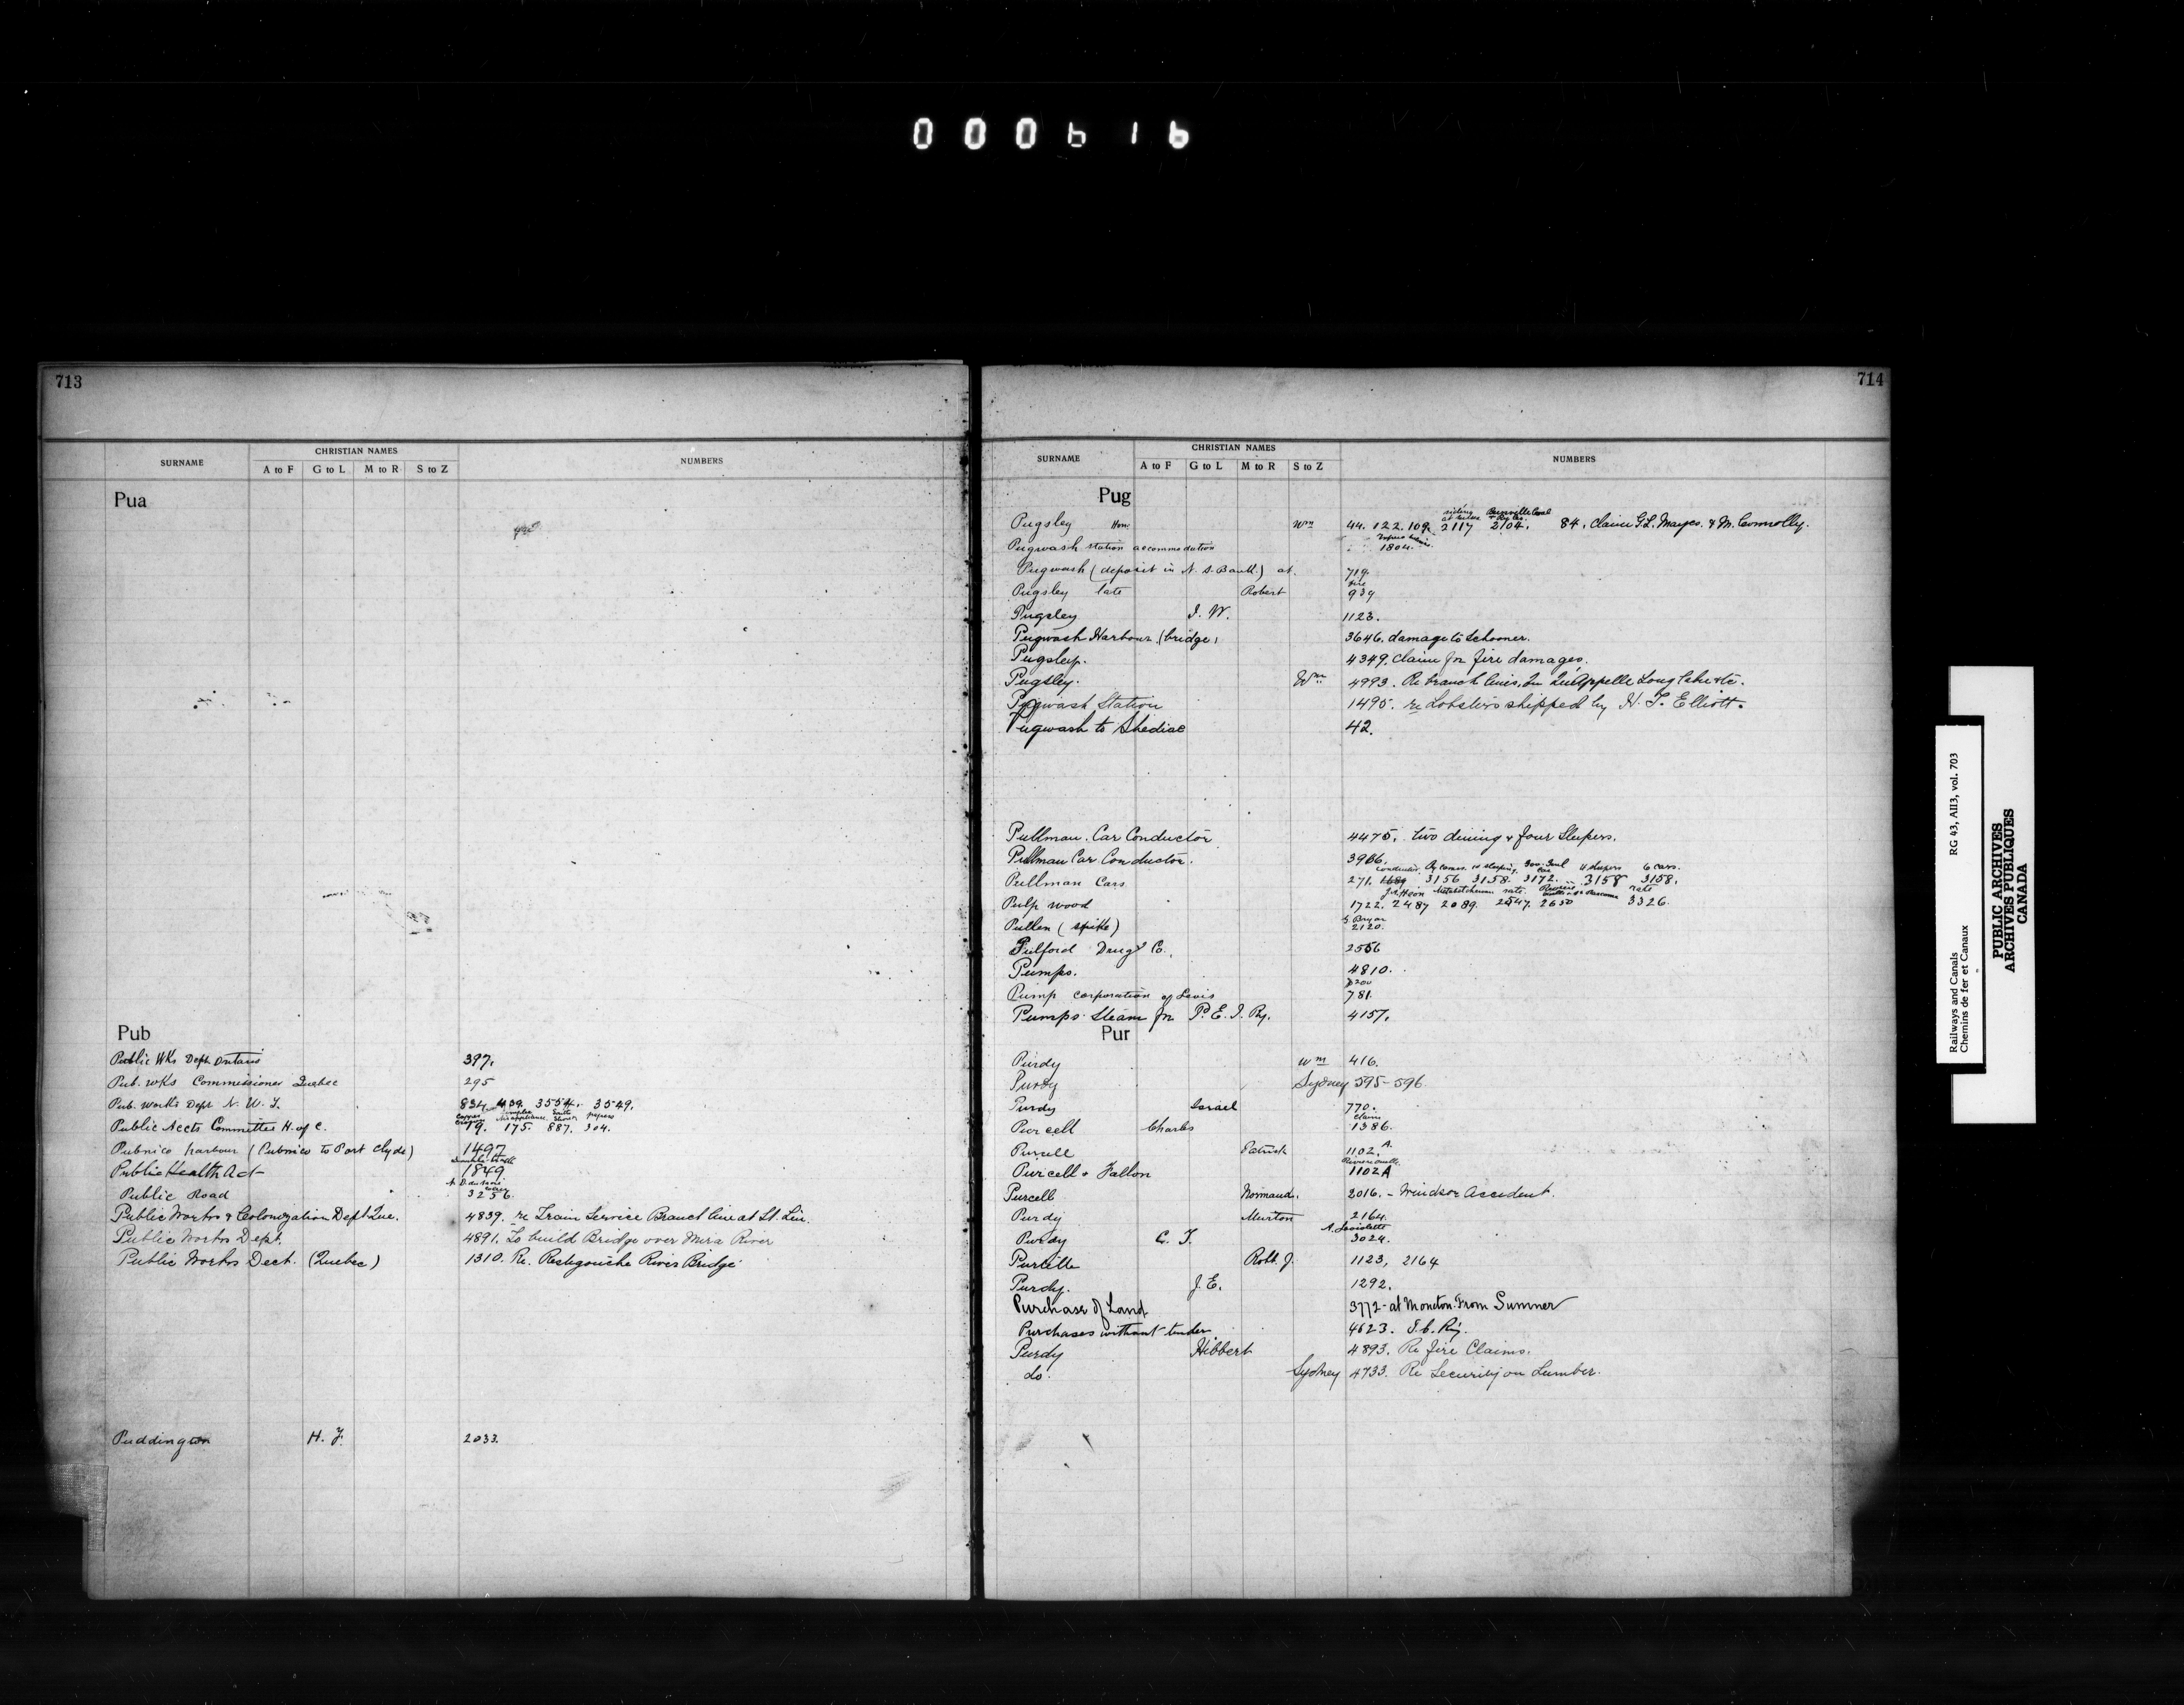 000616
713
SURNAME CHRISTIAN NAMES NUMBERS
A to F G to L M to R S to Z
Pua
Pub
Public Wks Dept. Ontario 397.
Pub. Wks Commissioner Quebec 295
Pub. Works Dept N. W. T. 834 3554. 3549.
Public Accts Committee H. of C. 19. 175. 887. 304.
Pubnico harbour (Pubnico to Port Clyde) 1497
Public Health Act 1849
Public Road 3256
Public Works & Colonization Dept Que. 4839. re Train Service Branch line at St. Lin.
Public Works Dept. 4891. To build Bridge over Mira River
Public Works Dect. (Quebec) 1310. Re. Restigouche River Bridge
Puddington H. J. 2033.
714
SURNAME CHRISTIAN NAMES NUMBERS
A to F G to L M to R S to Z
Pug
siding
Pugsley Hon. Wm 44. 122. 109. 2117 2104. 84, Claim G.L. Mayes. & M. Connolly.
Pugwash station accommodation 1804.
Pugwash (deposit in N. S. Bank) at. 719.
fire
Pugsley late Robert 939
Pugsley J. W. 1123.
Pugwash Harbour (bridge) 3646. damage to Schooner.
Pugsley. 4349. Claim for fire damages.
Pugsley. Wm 4993. Re branch lines. Qu'Appelle Long Lake &c.
Pugwash Station 1495. re Lobsters shipped by H. T. Elliott.
Pugwash to Shediac 42.
Pullman. Car Conductor 4475. two dining & four Sleepers.
Pullman Car Conductor. 3966.
4 sleepers 6 cars.
Pullman Cars 271. 1689 3156 3158. 3172. 3158 3158.
rate rate
Pulp wood 1722. 2487 2089. 2547. 2650 3326.
Pullen (spike) 2120.
Pulford Drug Co. 2556
Pumps. 4810.
Pump corporation of Levis 781.
Pumps Steam for P. E. I. Ry. 4157.
Pur
Purdy Wm 416.
Purdy Sydney 595-596
Purdy Israel 770.
claim
Purcell Charles 1386.
Purcell Patrick 1102. A.
Purcell & Fallon 1102A
Purcell Normand. 2016. - Windsor Accident.
Purdy Murton 2164.
A. Laviolette
Purdy C. T. 3024.
Robt. J. 1123, 2164
Purdy. J. E. 1292.
Purchase of Land 3772 - at Moncton. From Sumner
Purchases without tender. 4623. I. C. Ry.
Purdy Hibbert 4893. Re fire Claims.
do. Sydney 4733. Re Security on Lumber.
Railways and Canals RG 43, AII3, vol. 703
Chemins de fer et Canaux
PUBLIC ARCHIVES
ARCHIVES PUBLIQUES
CANADA